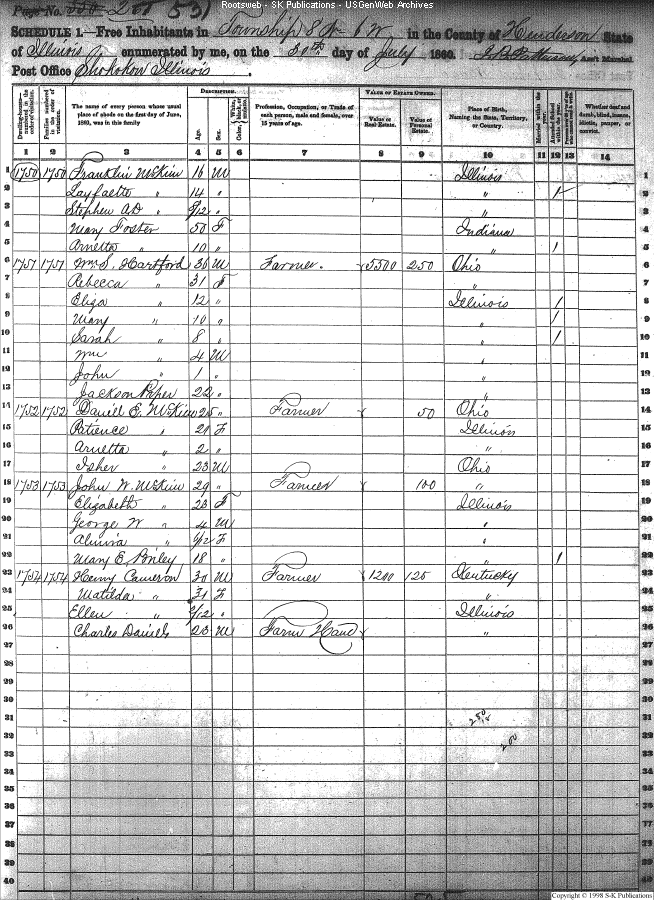 Rootsweb - SK Publications - USGenWeb Archives
Page No. 201 531
SCHEDULE 1.—Free Inhabitants in Township 8 N 6 W in the County of Henderson State
of Illinois enumerated by me, on the 30th day of July 1860. Ass't Marshal.
Post Office Shokokow Illinois.
DESCRIPTION. VALUE OF ESTATE OWNED.
Dwelling-houses numbered in the order of visitation. Families numbered in the order of visitation. The name of every person whose usual place of abode on the first day of June, 1860, was in this family Age. Sex. Color, Profession, Occupation, or Trade of each person, male and female, over 15 years of age. Value of Real Estate. Value of Personal Estate. Place of Birth, Naming the State, Territory, or Country. Married within the year. Attended School within the year. Whether deaf and dumb, blind, insane, idiotic, pauper, or convict.
1 2 3 4 5 6 7 8 9 10 11 12 13 14
1 1750 1750 Franklin McKim 16 M Illinois 1
2 Layfaette " 14 " " / 2
3 Stephen AD " 9/12 " " 3
4 Mary Foster 50 F Indiana 4
5 Arnetta " 10 " " / 5
6 1751 1751 Wm S. Hartford 36 M Farmer. 5500 250 Ohio 6
7 Rebecca " 31 F " 7
8 Eliza " 12 " Illinois / 8
9 Mary " 10 " " / 9
10 Sarah " 8 " " / 10
11 Wm " 4 M " 11
12 John " 1 " " 12
13 Jackson Piper 22 " " 13
14 1752 1752 Daniel E. McKim 25 " Farmer 50 Ohio 14
15 Patience " 20 F Illinois 15
16 Arnetta " 2 " " 16
17 Isher " 23 M Ohio 17
18 1753 1753 John W. McKim 29 " Farmer 100 " 18
19 Elizabeth " 23 F Illinois 19
20 George W " 4 M " 20
21 Almira " 9/12 F " 21
22 Mary E 18 " " / 22
23 1754 1754 Henry Cameron 30 M Farmer 1200 125 Kentucky 23
24 Matilda " 31 F " 24
25 Ellen " /12 " Illinois 25
26 Charles Daniels 23 M Farm Hand " 26
27 27
28 28
29 29
30 30
31 31
32 32
33 33
34 34
35 35
36 36
37 37
38 38
39 39
40 40
Copyright © 1998 S-K Publications